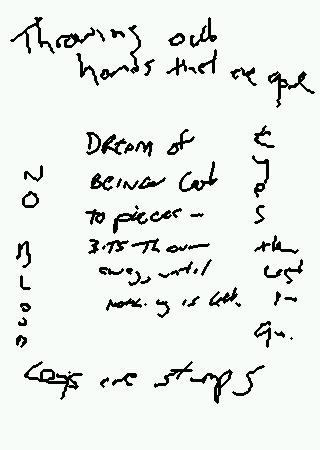 Throwing out
hands that are
NO BLOOD
DREAM OF
BEING Cut
to pieces –
BITS Thrown
away, until
nothing is left.
EYES
the
last
to
go.
Legs are stumps